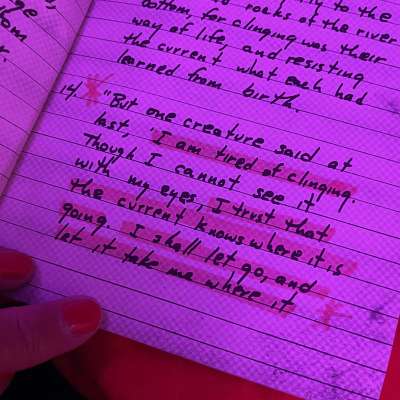 ge
om
r.
to the
rocks of the river
bottom, for clinging was their
way of life, and resisting
the current what each had
learned from birth.
14) "But one creature said at
last, "I am tired of clinging.
Though I cannot see it
with my eyes, I trust that
the current knows where it is
going. I shall let go, and
let it take me where it